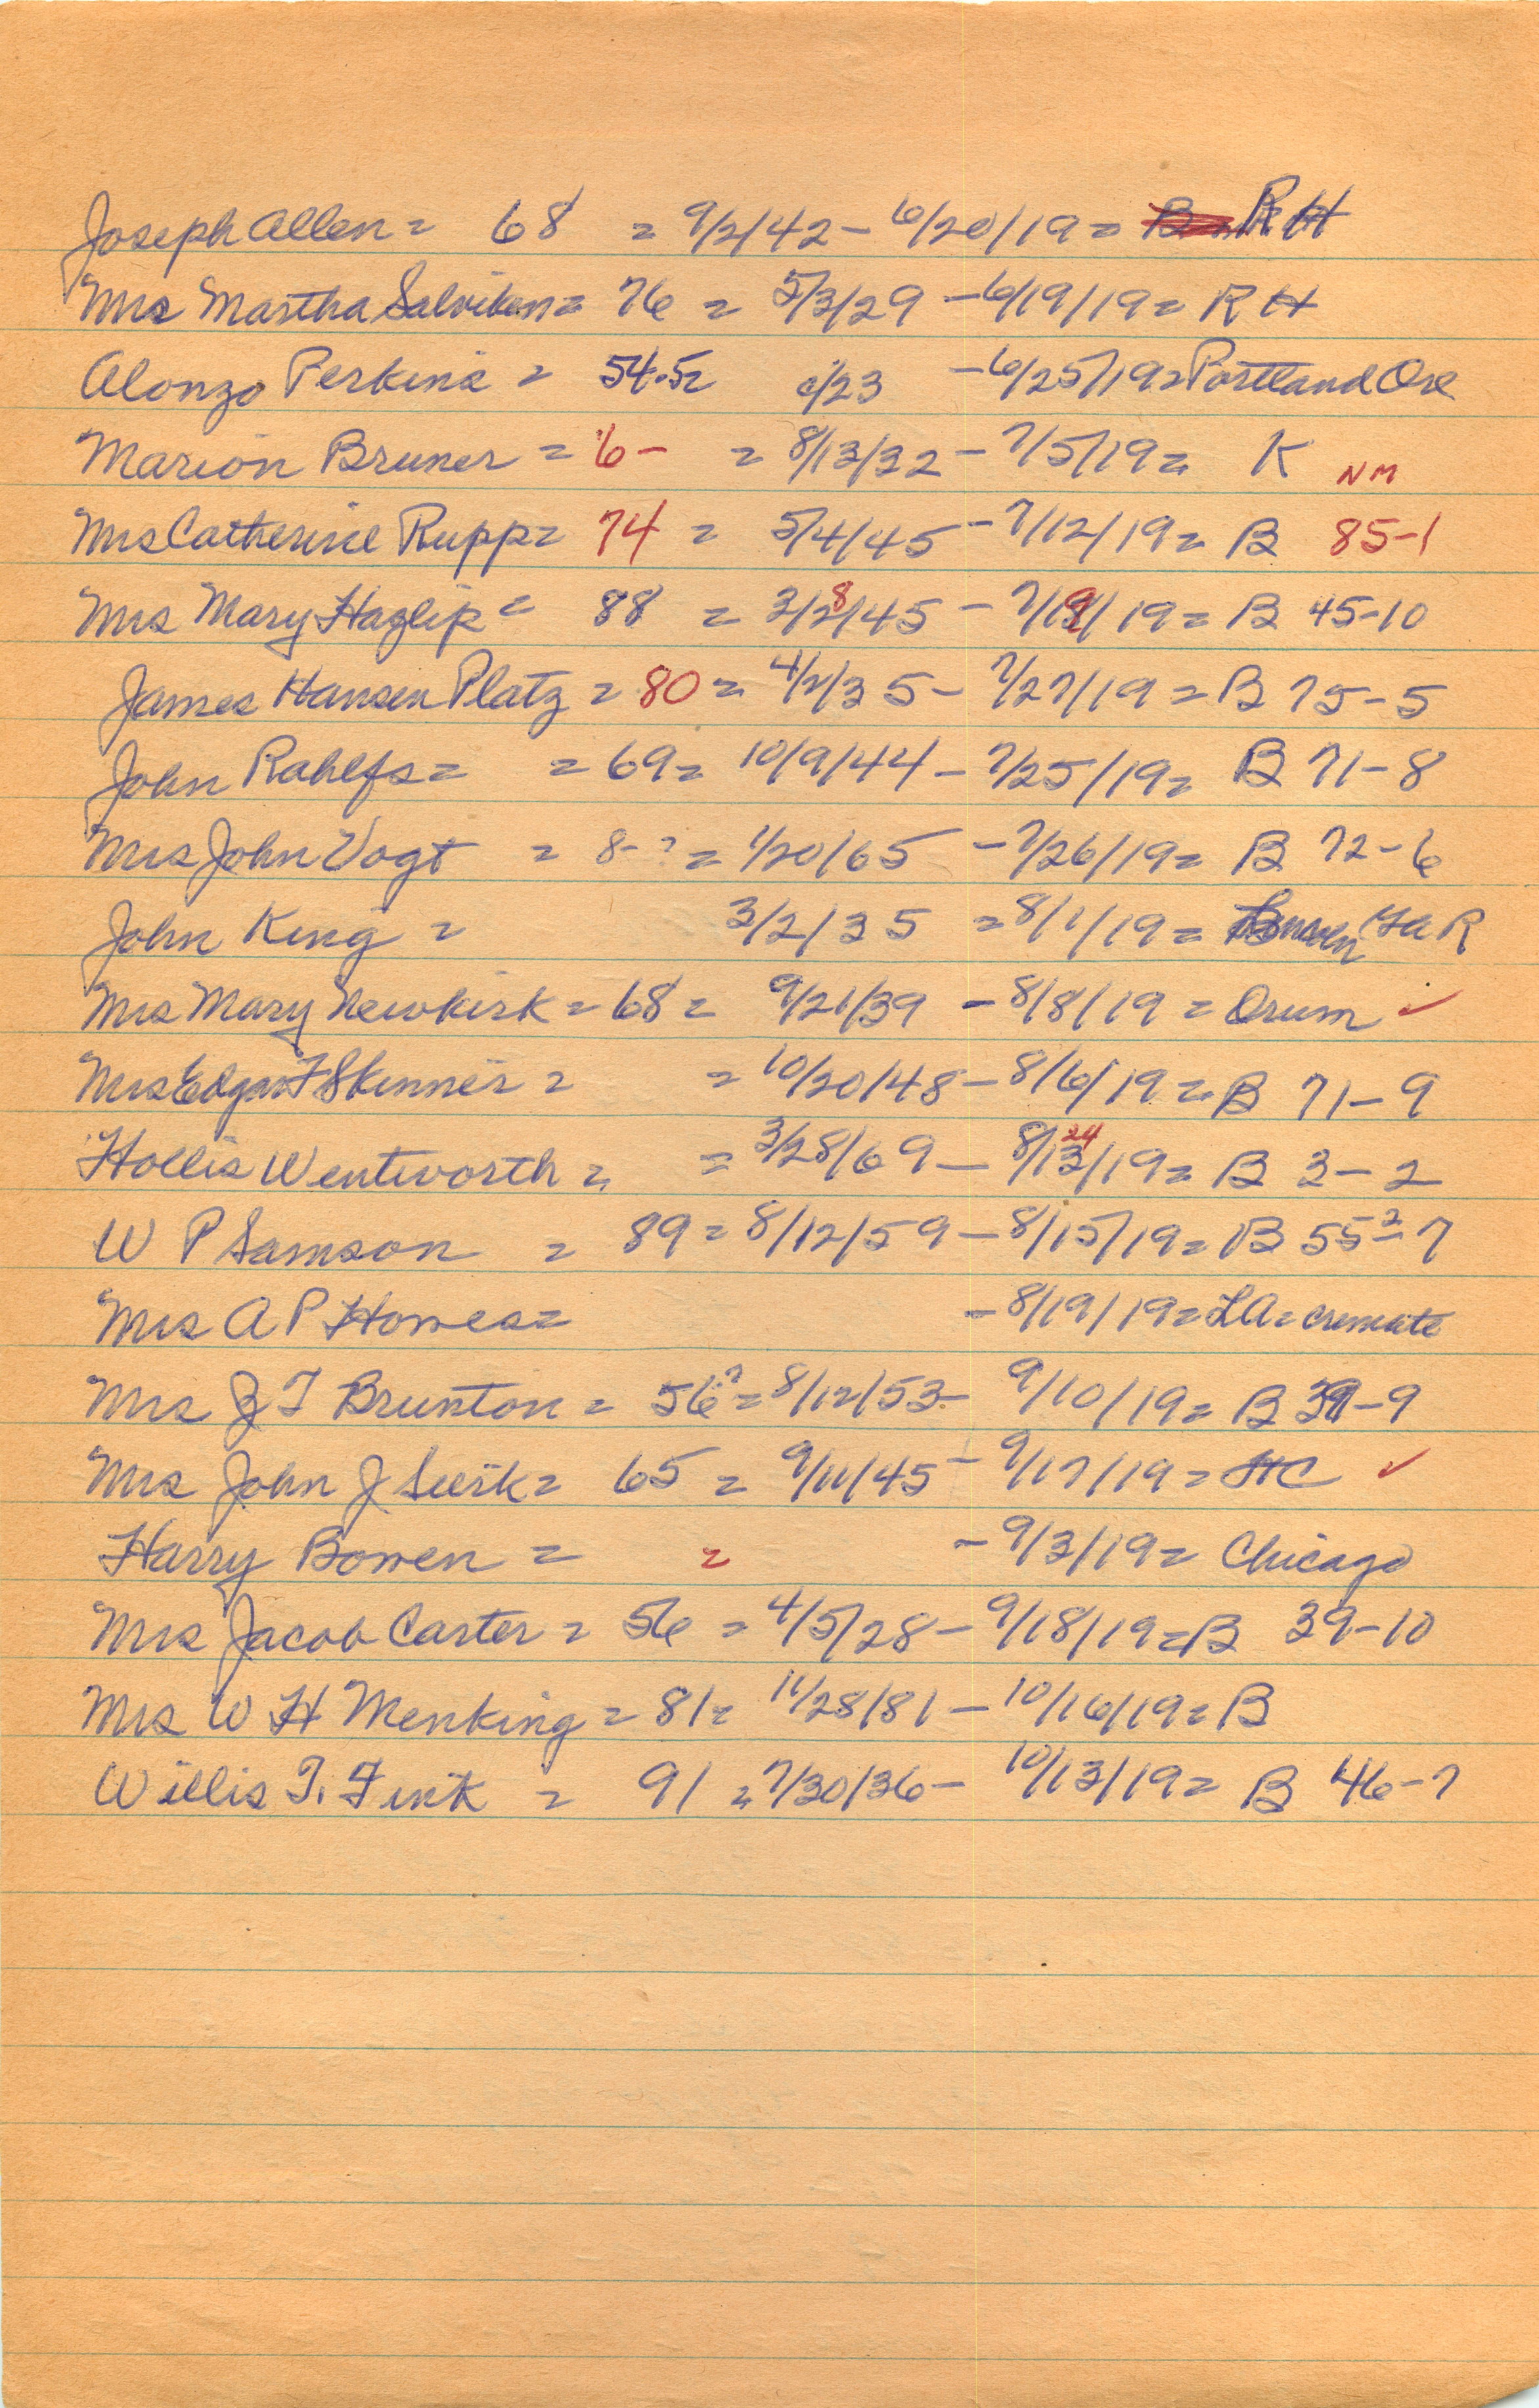 Joseph Allen = 68 = 9/2/42 - 6/20/19 = RH
Mrs Martha Salviken = 76 = 5/3/29 - 6/19/19 = RH
Alonzo Perkins = 54.5 = c/23 - 6/25/19 = Portland Ore
Marion Bruner = 6- = 8/13/32 - 7/5/19 = K NM
Mrs Catherine Rupp = 74 = 5/4/45 - 7/12/19 = B 85-1
Mrs Mary Hazlip = 88 = 3/28/45 - 7/19/19 = B 45-10
James Hansen Platz = 80 = 4/2/35 - 7/27/19 = B 75-5
John Rahlfs = = 69 = 10/9/44 - 7/25/19 = B 71-8
Mrs John Vogt = 8-? = 1/20/65 - 7/26/19 = B 72-6
John King = 3/2/35 = 8/1/19 =
Mrs Mary Newkirk = 68 = 9/21/39 - 8/8/19 = Orum ✓
Mrs Edgar F Skinner = = 10/20/48 - 8/6/19 = B 71-9
Hollis Wentworth = = 3/28/69 - 8/13/19 = B 3-2 24
W P Samson = 89 = 8/12/59 - 8/15/19 = B 55 2-7
Mrs A P Howes = - 8/19/19 = LA = cremate
Mrs J T Brunton = 56? = 8/12/53 - 9/10/19 = B 39-9
Mrs John J Seirk = 65 = 9/11/45 - 9/17/19 = HC ✓
Harry Bowen = = - 9/3/19 = Chicago
Mrs Jacob Carter = 56 = 4/5/28 - 9/18/19 = B 39-10
Mrs W H Menking = 81 = 11/28/81 - 10/16/19 = B
Willis T. Fink = 91 = 7/30/36 - 10/13/19 = B 46-7